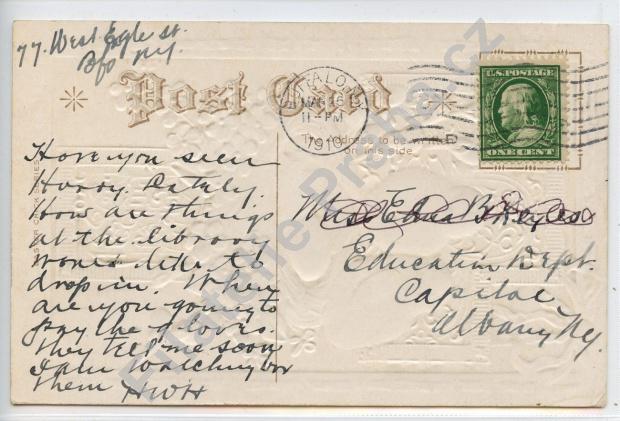 77. West Eagle st.
Bfo NY.
Post Card
BUFFALO, N.Y.
MAR 26
11-PM
1910
U.S. POSTAGE
ONE CENT
The Address to be written
on this side.
Have you seen
Harry, lately.
How are things
at the library
would like to
drop in. When
are you going to
pay the gloves.
They tell me soon
I am watching for
them HWH
Miss Edna B.
Education Dept.
Capitol
Albany Ny.
Filatelie-Praha.cz